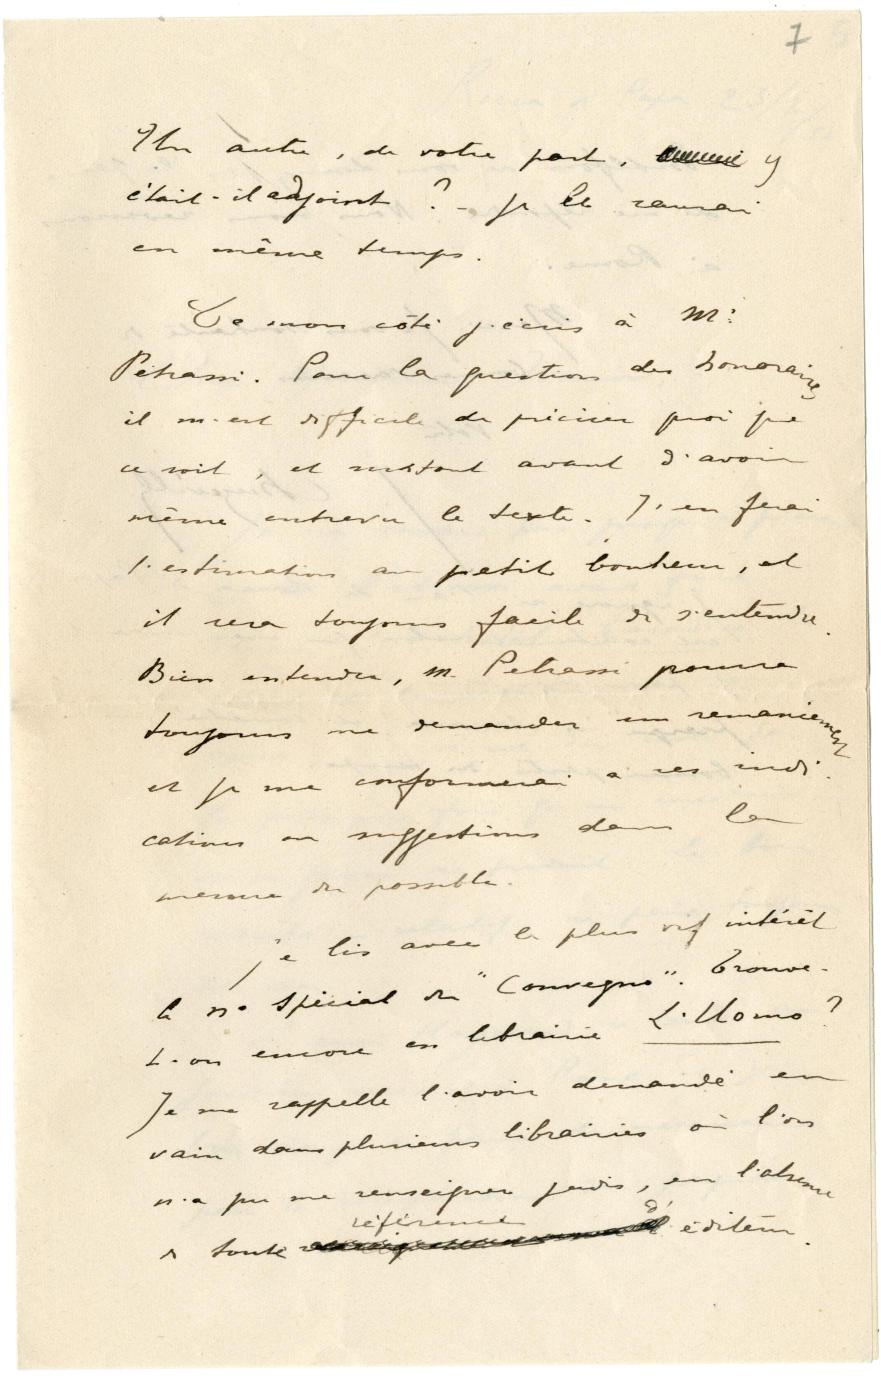 7
Un autre, de votre part, y
était-il adjoint ? – Je le saurai
en même temps.
De mon côté j'écris à Mr
Petrassi. Pour la question des honoraires
il m'est difficile de préciser quoi que
ce soit, et surtout avant d'avoir
même entrevu le texte. J'en ferai
l'estimation au petit bonheur, et
il sera toujours facile de s'entendre.
Bien entendu, M. Petrassi pourra
toujours me demander un remaniement
et je me conformerai à ses indi-
cations ou suggestions dans la
mesure du possible.
Je lis avec le plus vif intérêt
le no spécial du "Convegno". Trouve-
t-on encore en librairie L'Uomo ?
Je me rappelle l'avoir demandé en
vain dans plusieurs librairies où l'on
n'a pu me renseigner jadis, en l'absence
de toute référence d'éditeur.